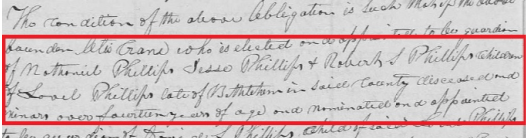 The condition of the above Obligation is such that if the above
bounden Crane who is elected and appointed to be guardian
of Nathaniel Phillips Jesse Phillips & Robert S Phillips children
of Phillips late of Bethlehem in said County deceased and
minors over fourteen years of age and nominated and appointed
to be guardian of S Phillips child of said Phillips